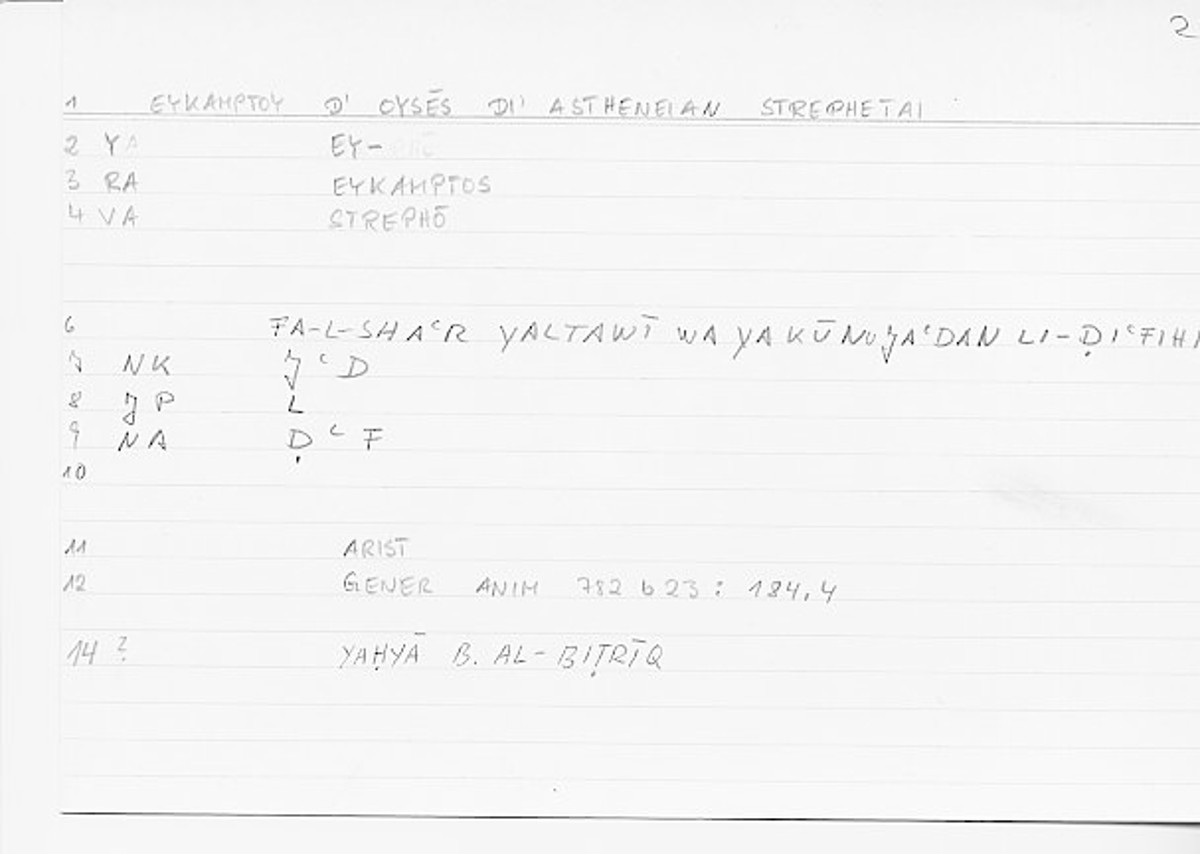 2
1 EYKAMPTOY D' OYSĒS DI' ASTHENEIAN STREPHETAI
2 YA EY-
3 RA EYKAMPTOS
4 VA STREPHŌ
6 FA-L-SHAʿR YALTAWĪ WA YAKŪNU ǦAʿDAN LI-ḌIʿFIHI
7 NK Ǧ ʿ D
8 ǦP L
9 NA Ḍ ʿ F
10
11 ARIST
12 GENER ANIM 782 b 23 : 184,4
14 ? YAḤYĀ B. AL-BIṬRĪQ